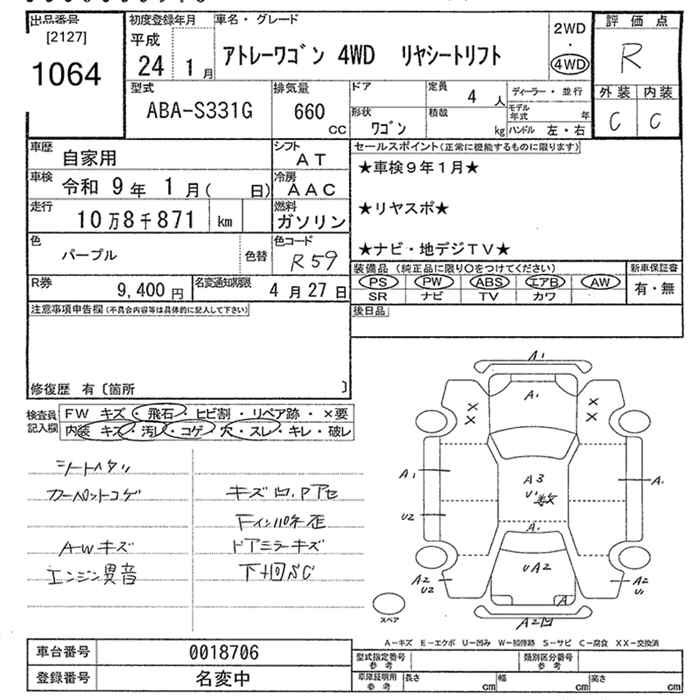 出品番号
[2127]
1064
初度登録年月
平成
24 1月
車名・グレード
アトレーワゴン 4WD リヤシートリフト
2WD
・
4WD
評価点
R
外装 内装
C C
型式
ABA-S331G
排気量
660
CC
ドア
定員
4 人
ディーラー・並行
形状
ワゴン
積載
kg
モデル年式 年
ハンドル 左・右
車歴
自家用
シフト
AT
車検
令和 9年 1月( 日)
冷房
AAC
走行
10万8千871 km
燃料
ガソリン
色
パープル
色替
色コード
R59
R券
9,400円
名変通知期限
4月27日
セールスポイント(正常に機能するものに限ります)
★車検9年1月★
★リヤスポ★
★ナビ・地デジTV★
装備品 (純正品に限り○をつけてください)
新車保証書
PS PW ABS エアB AW
SR ナビ TV カワ
有・無
後日品
注意事項申告欄(不具合内容等は具体的に記入して下さい)
修復歴 有〔箇所 〕
検査員記入欄
FW キズ・飛石・ヒビ割・リペア跡・×要
内装 キズ・汚レ・コゲ・穴・スレ・キレ・破レ
シートヘタリ
カーペットコゲ
AWキズ
エンジン異音
キズ凹.Pアセ
ドアミラーキズ
下廻SC
A1
A1
× ×
× ×
A1
U2
A3
U1数
A1
A1
UA2
A
A2
U2
A2
U1
A2凹
スペア
A-キズ E-エクボ U-凹み W-補修跡 S-サビ C-腐食 XX-交換済
車台番号
0018706
登録番号
名変中
型式指定番号
参考
類別区分番号
参考
車庫証明用
参考
長さ cm
幅 cm
高さ cm